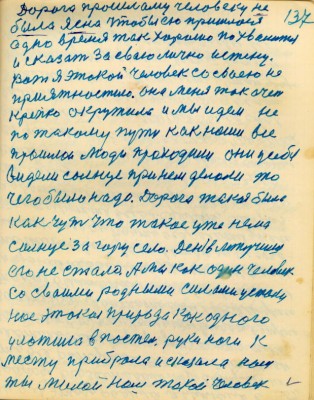 Дорога прошлому человеку не 137
была ясна чтобы ею пришлось
одно время так хорошо похвалится
и сказать за свою лично истену.
Вот я этакой человек со своею не
приятностию. она меня так очет
крепко окружила и мы идем не
по такому пути как наши все
прошлои люди проходили они у себя
видели солнце при нем делали то
чего было надо. Дорога такая была
как чут что такое уже нема
солнце за гору село. Денёв лтучшую
его не стало А мы как один человек
со своими родными силами
ное этакая природа как одного
уложила в постел. руки ноги к
месту прибрала и сказала нам
ты милой нам такой человек